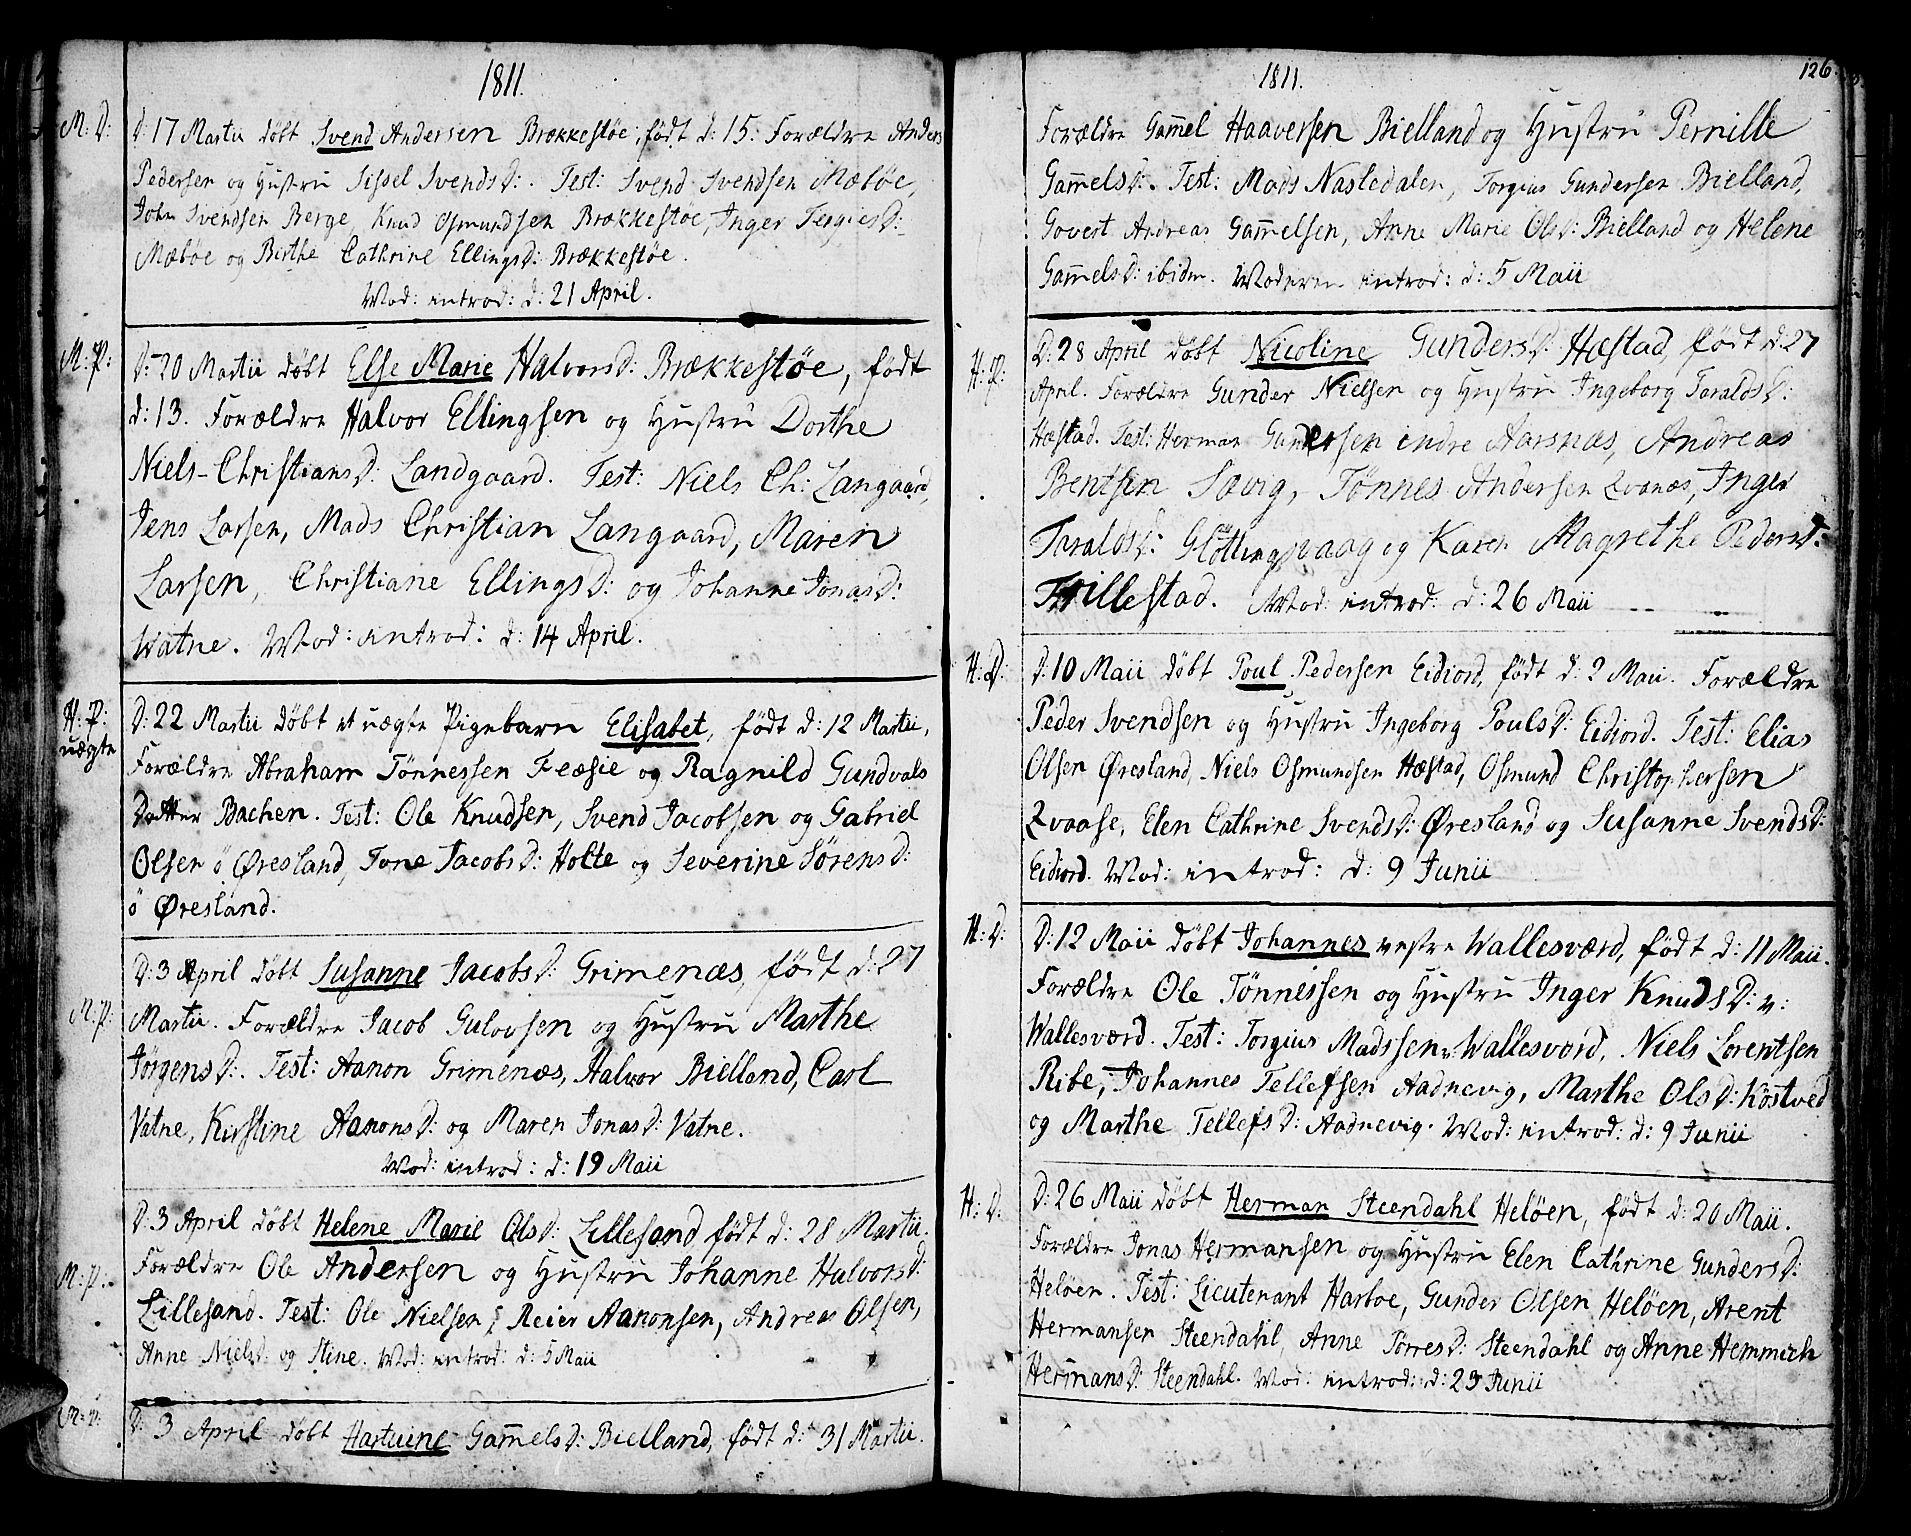 1811.
M: D: D: 17 Martii døbt Svend Andersen Brækkestøe, født d: 15: Forældre Anders
Pedersen og Hustru Sissel SvendsD:. Test: Svend Svendsen Mæbøe,
John Svendsen Berge, Knud Osmundsen Brækkestøe, Inger TergiesD:
Mæbøe og Birthe Cathrine EllingsD: Brækkestøe.
Mod: introd: d: 21 April.
M: P: D: 20 Martii døbt Else Marie HalvorsD: Brækkestøe, født
d: 13. Forældre Halvor Ellingsen og Hustru Dorthe
Niels-ChristiansD: Landgaard. Test: Niels Ch: Langaard,
Jens Larsen, Mads Christian Langaard, Maren
Larsen, Christiane EllingsD: og Johanne JonasD:
Watne. Mod: introd: d: 14 April.
H: P: uægte
D: 22 Martii døbt et uægte Pigebarn Elisabet, født d: 12 Martii,
Forældre Abraham Tönnessen Feæsie og Ragnild Gundvals
Datter Bachen. Test: Ole Knudsen, Svend Jacobsen og Gabriel
Olsen ö Øresland, Tone JacobsD: Holte og Severine SörensD:
ö Øresland.
M: P: D: 3 April døbt Susanne JacobsD: Grimenæs, født d: 27
Martii. Forældre Jacob Gulovsen og Hustru Marthe
JörgensD:. Test: Aanon Grimenæs, Halvor Bielland, Carl
Vatne, Kirstine AanonsD: og Maren JonasD: Vatne.
Mod: introd: d: 19 Maii
M: P: D: 3 April døbt Helene Marie OlsD: Lillesand født d: 28 Martii.
Forældre Ole Andersen og Hustru Johanne HalvorsD:
Lillesand. Test: Ole Nielsen, Reier Aanonsen, Andreas Olsen,
Anne NielsD: og Stine. Mod: introd: d: 5 Maii
M: P: D: 3 April døbt Hartvine Gam̄elsD: Bielland, født d: 31 Martii.
1811.
126.
Forældre Gam̄el Haaversen Bielland og Hustru Pernille
Gam̄elsD:. Test: Mads Nastedalen, Torgius Gundersen Bielland,
Govert Andreas Gam̄elsen, Anne Marie OlsD: Bielland og Helene
Gam̄elsD: ibidm. Moderen introd: d: 5 Maii
H: P: D: 28 April døbt Nicoline GundersD: Hæstad, født d: 27
April. Forældre Gunder Nielsen og Hustru Ingeborg TaraldsD:
Hæstad. Test: Herman Gundersen indre Aarsnæs, Andreas
Bentsen Sævig, Tönnes Andersen Qvanæs, Inger
TaraldsD: Glöttingsvaag og Karen Magrethe PedersD:
Trillestad. Mod: introd: d: 26 Maii
H: D: D: 10 Maii døbt Poul Pedersen Eidiord, født d: 2 Maii. Forældre
Peder Svendsen og Hustru Ingeborg PoulsD: Eidiord. Test: Elias
Olsen Øresland, Niels Osmundsen Hæstad, Osmund Christophersen
Qvaase, Elen Cathrine SvendsD: Øresland og Susanne SvendsD:
Eidiord. Mod: introd: d: 9 Junii
H: D: D: 12 Maii døbt Johannes vestre Wallesværd, født d: 11 Maii.
Forældre Ole Tönnessen og Hustru Inger KnudsD: v:
Wallesværd. Test: Torgius Madssen v: Wallesværd, Niels Lorentsen
Ribe, Johannes Tellefsen Aadnevig, Marthe OlsD: Kostved
og Marthe TellefsD: Aadnevig. Mod: introd: d: 9 Junii
H: D: D: 26 Maii døbt Herman Steendahl Heløen, født d: 20 Maii.
Forældre Jonas Hermansen og Hustru Elen Cathrine GundersD:
Heløen. Test: Lieutenant Harboe, Gunder Olsen Heløen, Arent
Hermansen Steendahl, Anne TorresD: Steendahl og Anne Hemmich
HermansD: Steendahl. Mod: introd: d: 23 Junii